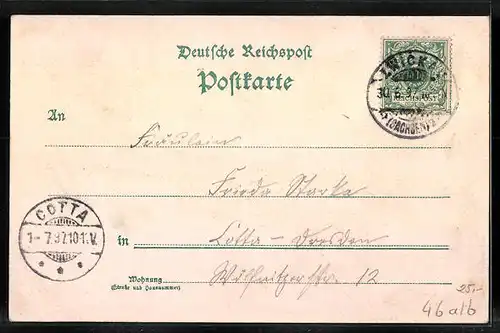 Deutsche Reichspost
Postkarte
ZWICKAU
(SACHSEN)
An
Fräulein
Frieda Starke
COTTA
1-7.97.10-11.V.
in Cotta-Dresden
Wilsdrufferstr. 12
Wohnung
(Straße und Hausnummer)
25.-
46 a+b